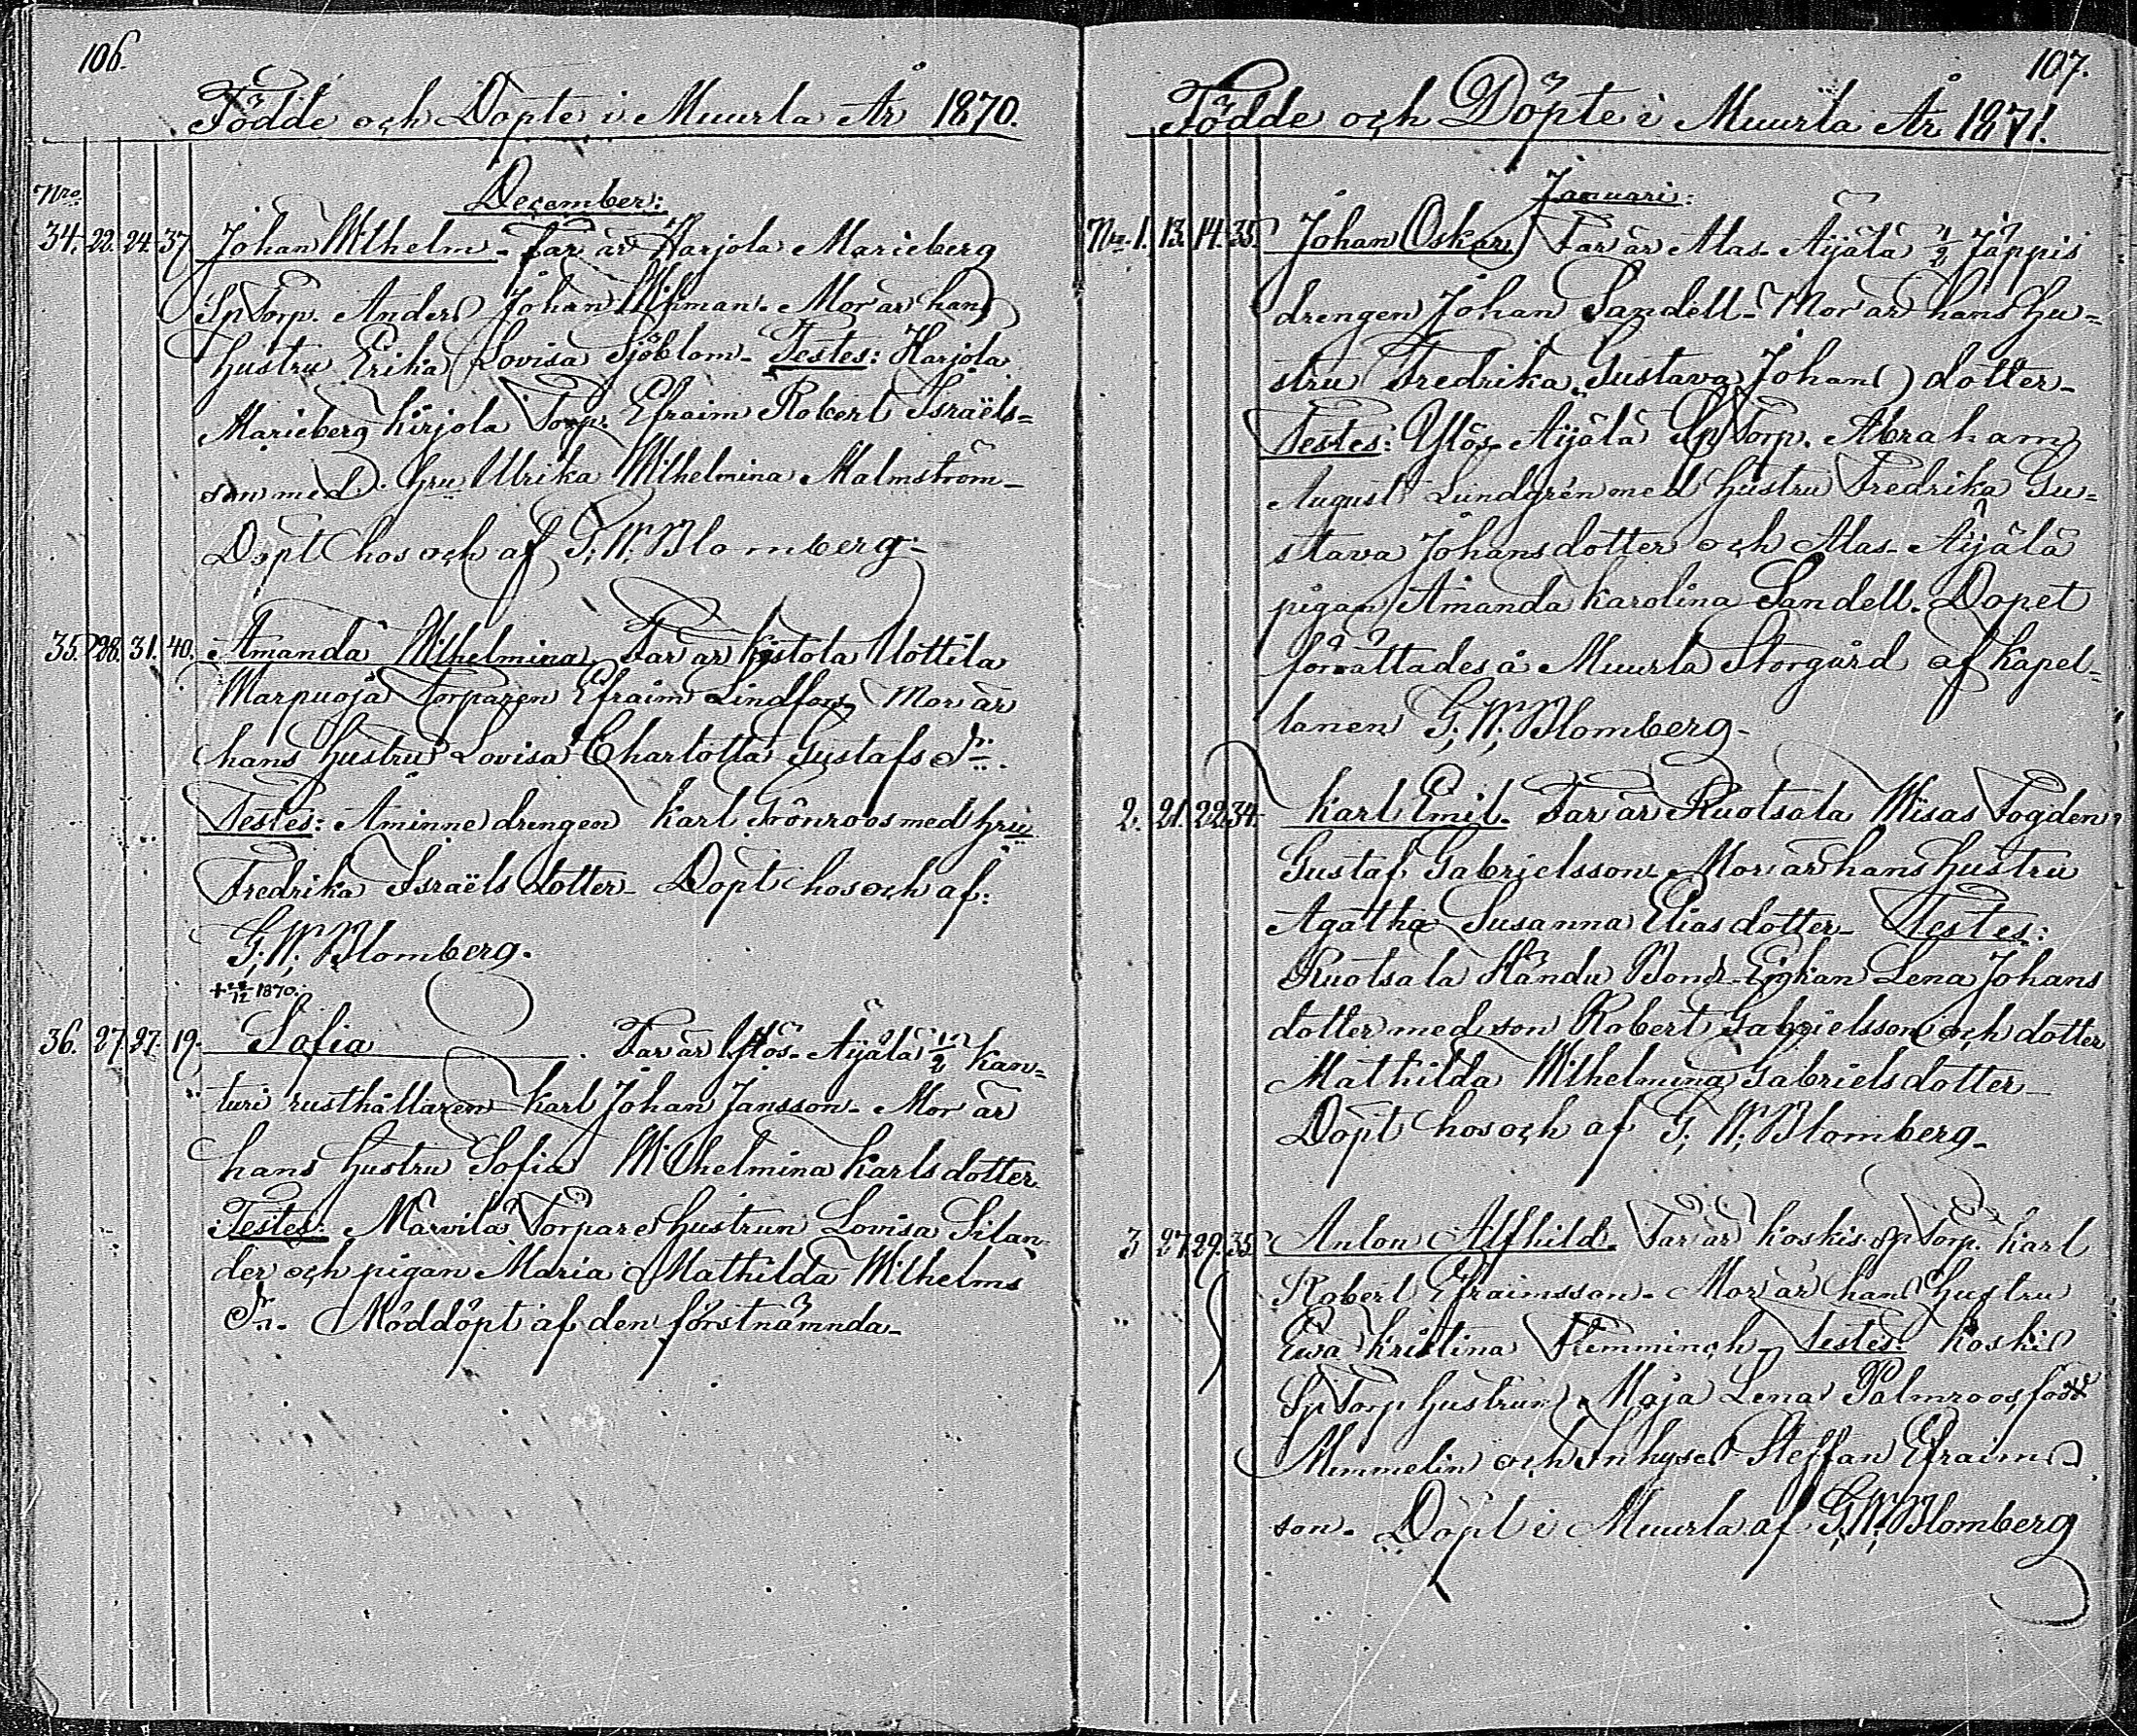 106.
Födde och Döpte i Muurla År 1870.
December:
Nro
34. 22. 24. 37. Johan Wilhelm. Far är Harjola Marieberg
SpTorp. Anders Johan Wikman. Mor är hans
hustru Erika Lovisa Sjöblom. Testes: Harjola
Marieberg Kirjola Torp. Efraim Robert Israëls=
son med hru Ulrika Wilhelmina Malmström.
Döpt hos och af G. W. Blomberg.
35. 28. 31. 40. Amanda Wilhelmina. Far är Kistola Uottila
Marpuoja Torparen Efraim Lindfors. Mor är
hans hustru Lovisa Charlotta Gustafs Dr.
Testes: Åminne drengen Karl Grönroos med hru
Fredrika Israëls dotter. Döpt hos och af:
G. W. Blomberg.
+ 28/12 1870.
36. 27. 27. 19. Sofia. Far är Ylös-Äijälä 1/2 Kan=
turi rusthållaren Karl Johan Jansson. Mor är
hans hustru Sofia Wilhelmina Karls dotter.
Testes: Märvilä Torpare hustrun Lovisa Silan
der och pigan Maria Mathilda Wilhelms
Dr. Nöddöpt af den förstnämnda.
107.
Födde och Döpte i Muurla År 1871.
Januari:
Nro 1. 13. 14. 35. Johan Oskar. Far är Alas-Äijälä 1/2 Jäppis
drengen Johan Sandell. Mor är hans hu=
stru Fredrika Gustava Johans dotter.
Testes: Ylös-Äijälä SpTorp. Abraham
August Lundgrén med hustru Fredrika Gu=
stava Johans dotter och Alas-Äijälä
pigan Amanda Karolina Sandell. Dopet
förrättades å Muurla Storgård af Kapel=
lanen G. W. Blomberg.
2. 21. 22. 34. Karl Emil. Far är Ruotsala Wisas Fogden
Gustaf Gabrielsson. Mor är hans hustru
Agatha Susanna Elias dotter. Testes:
Ruotsala Händu Bond-Enkan Lena Johans
dotter med son Robert Gabrielsson och dotter
Mathilda Wilhelmina Gabriels dotter.
Döpt hos och af G. W. Blomberg.
3 27. 29. 35. Anton Alfhild. Far är Koskis SpTorp. Karl
Robert Efraimsson. Mor är hans hustru
Ewa Kristina Flemminch. Testes: Koskis
SpTorp hustrun Maja Lena Palmroos född
Mimmelin och Inhyses Steffan Efraims
son. Döpt i Muurla af G. W. Blomberg